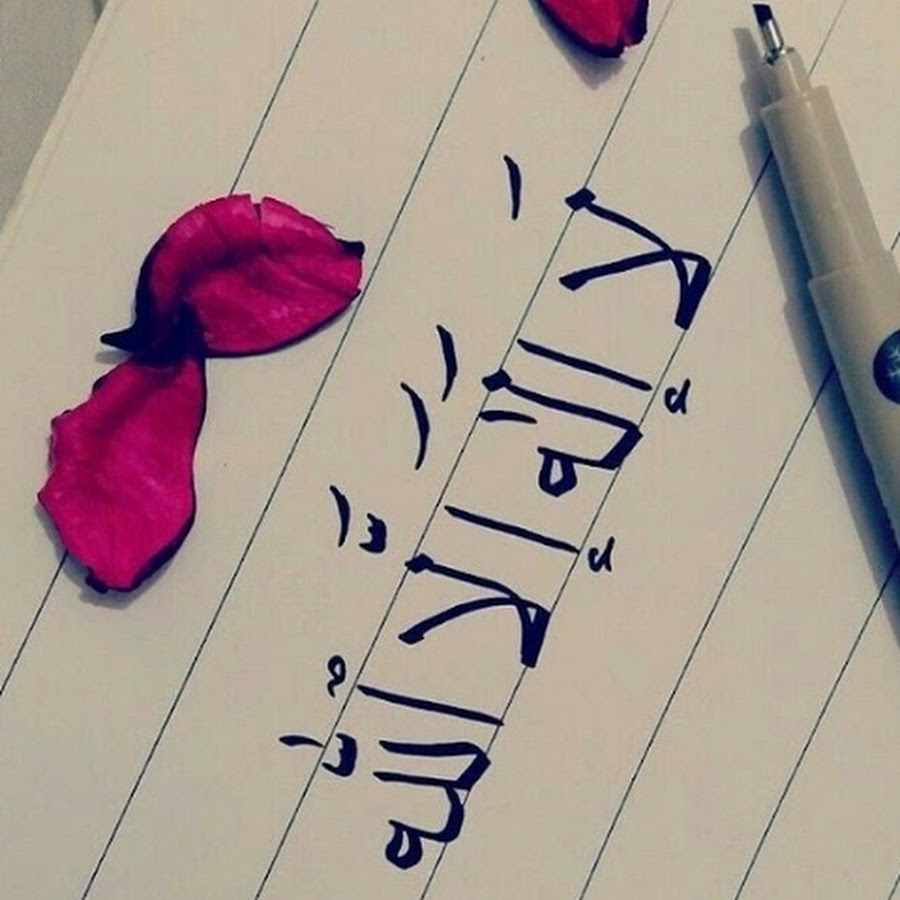 لَا إلَٰهَ إلَّا ٱللَّه